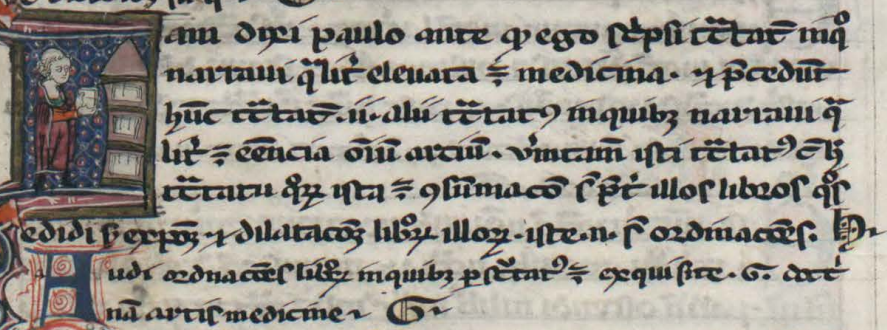 Iam dixi paulo ante qꝫ ego sc͛psi tͣctat̄ inqͦ
narraui qͣlit᷑ eleuata ÷ medicina· ⁊ p̄cedūt
hūc tͣctat̄·ii·alii tͣctatꝰ inquibꝫ narraui qͣ
lit᷑ ÷ eēncia oīū artiū· isti tͣctatꝰ
tͣctatu ista ÷ ꝯsūmacō s̄ illos libros qͦs
edidi expōꝫ ⁊ dilatacōꝫ libroꝝ illoꝝ·iste·n· s̄ ordinacōes.
Audi ordnacōes libroꝝ inquibꝫ ÷ exquisite·G· doct͛
nā artis medicine